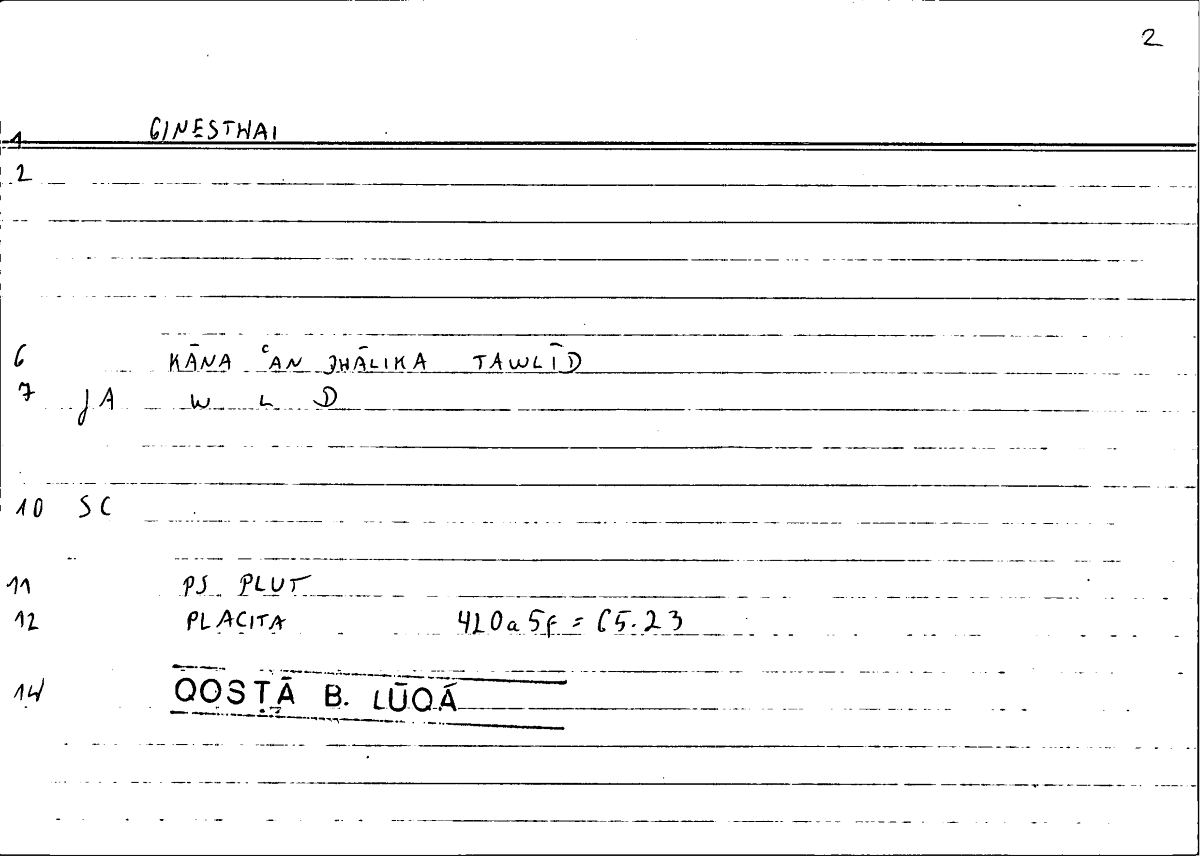 2
1 GINESTHAI
2
6 KĀNA ʿAN DHĀLIKA TAWLĪD
7 JA W L D
10 SC
11 PS PLUT
12 PLACITA 420a5f = 65.23
14 QOSṬĀ B. LŪQĀ